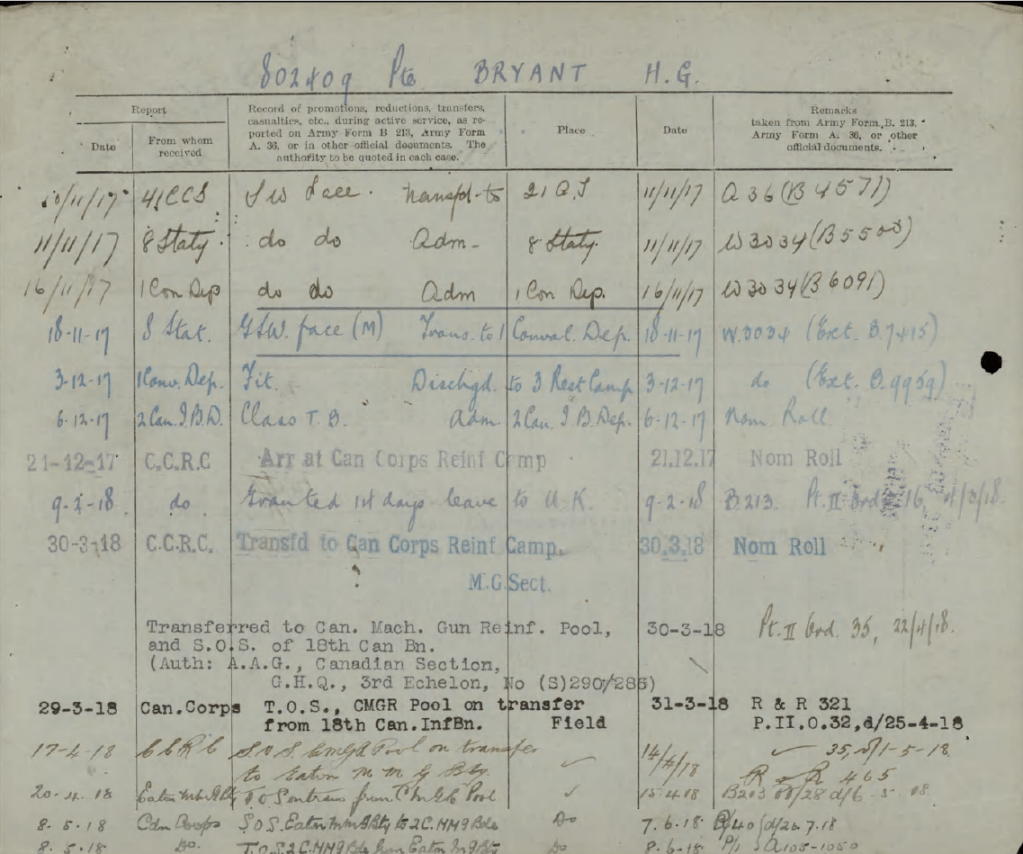 802409 Pte BRYANT H.G.
Report
Date
From whom received
Record of promotions, reductions, transfers, casualties, etc., during active service, as reported on Army Form B 213, Army Form A. 36, or in other official documents. The authority to be quoted in each case.
Place
Date
Remarks taken from Army Form B. 213, Army Form A. 36, or other official documents.
10/11/17 41 CCS Face. Transfd to 21 A.T 11/11/17 A 36 (B 4571)
11/11/17 8 Staty. do do Adm- 8 Staty. 11/11/17 W3034 (B5503)
16/11/17 1 Con Dep do do Adm 1 Con Dep. 16/11/17 W3034 (B6091)
18-11-17 8 Stat. GSW. face (M) Trans. to 1 Conval. Dep. 18-11-17 W.3034 (Ext. B.7415)
3-12-17 1 Conv. Dep. Fit. Dischgd. to 3 Rest Camp 3-12-17 do (Ext. B.9959)
6-12-17 2 Can. I.B.D. Class T.B. Adm 2 Can. I.B.Dep. 6-12-17 Nom Roll
21-12-17 C.C.R.C Arr at Can Corps Reinf Camp 21.12.17 Nom Roll
9-2-18 do Granted days leave to U.K. 9-2-18 B.213. Pt. II Ord 16
30-3-18 C.C.R.C. Transfd to Can Corps Reinf Camp. 30.3.18 Nom Roll
? M.G.Sect.
Transferred to Can. Mach. Gun Reinf. Pool, 30-3-18 Pt. II Ord. 35, 22/4/18.
and S.O.S. of 18th Can Bn.
(Auth: A.A.G., Canadian Section,
G.H.Q., 3rd Echelon, No (S)290/285)
29-3-18 Can.Corps T.O.S., CMGR Pool on transfer 31-3-18 R & R 321
from 18th Can.InfBn. Field P.II.O.32,d/25-4-18
17-4-18 C C R C S.O.S. Pool on transfer 14/4/18 35, d/1-5-18
to Eaton M M G Bty R & R 465
20-4-18 Eaton T.O.S from Pool 15-4-18 B213
8-5-18 Cdn Corps S.O.S. Eaton MMGBty to 2C.MMGBde Do 7.6.18
8-5-18 Do. T.O.S 2C.MMGBde from Eaton Do 8-6-18